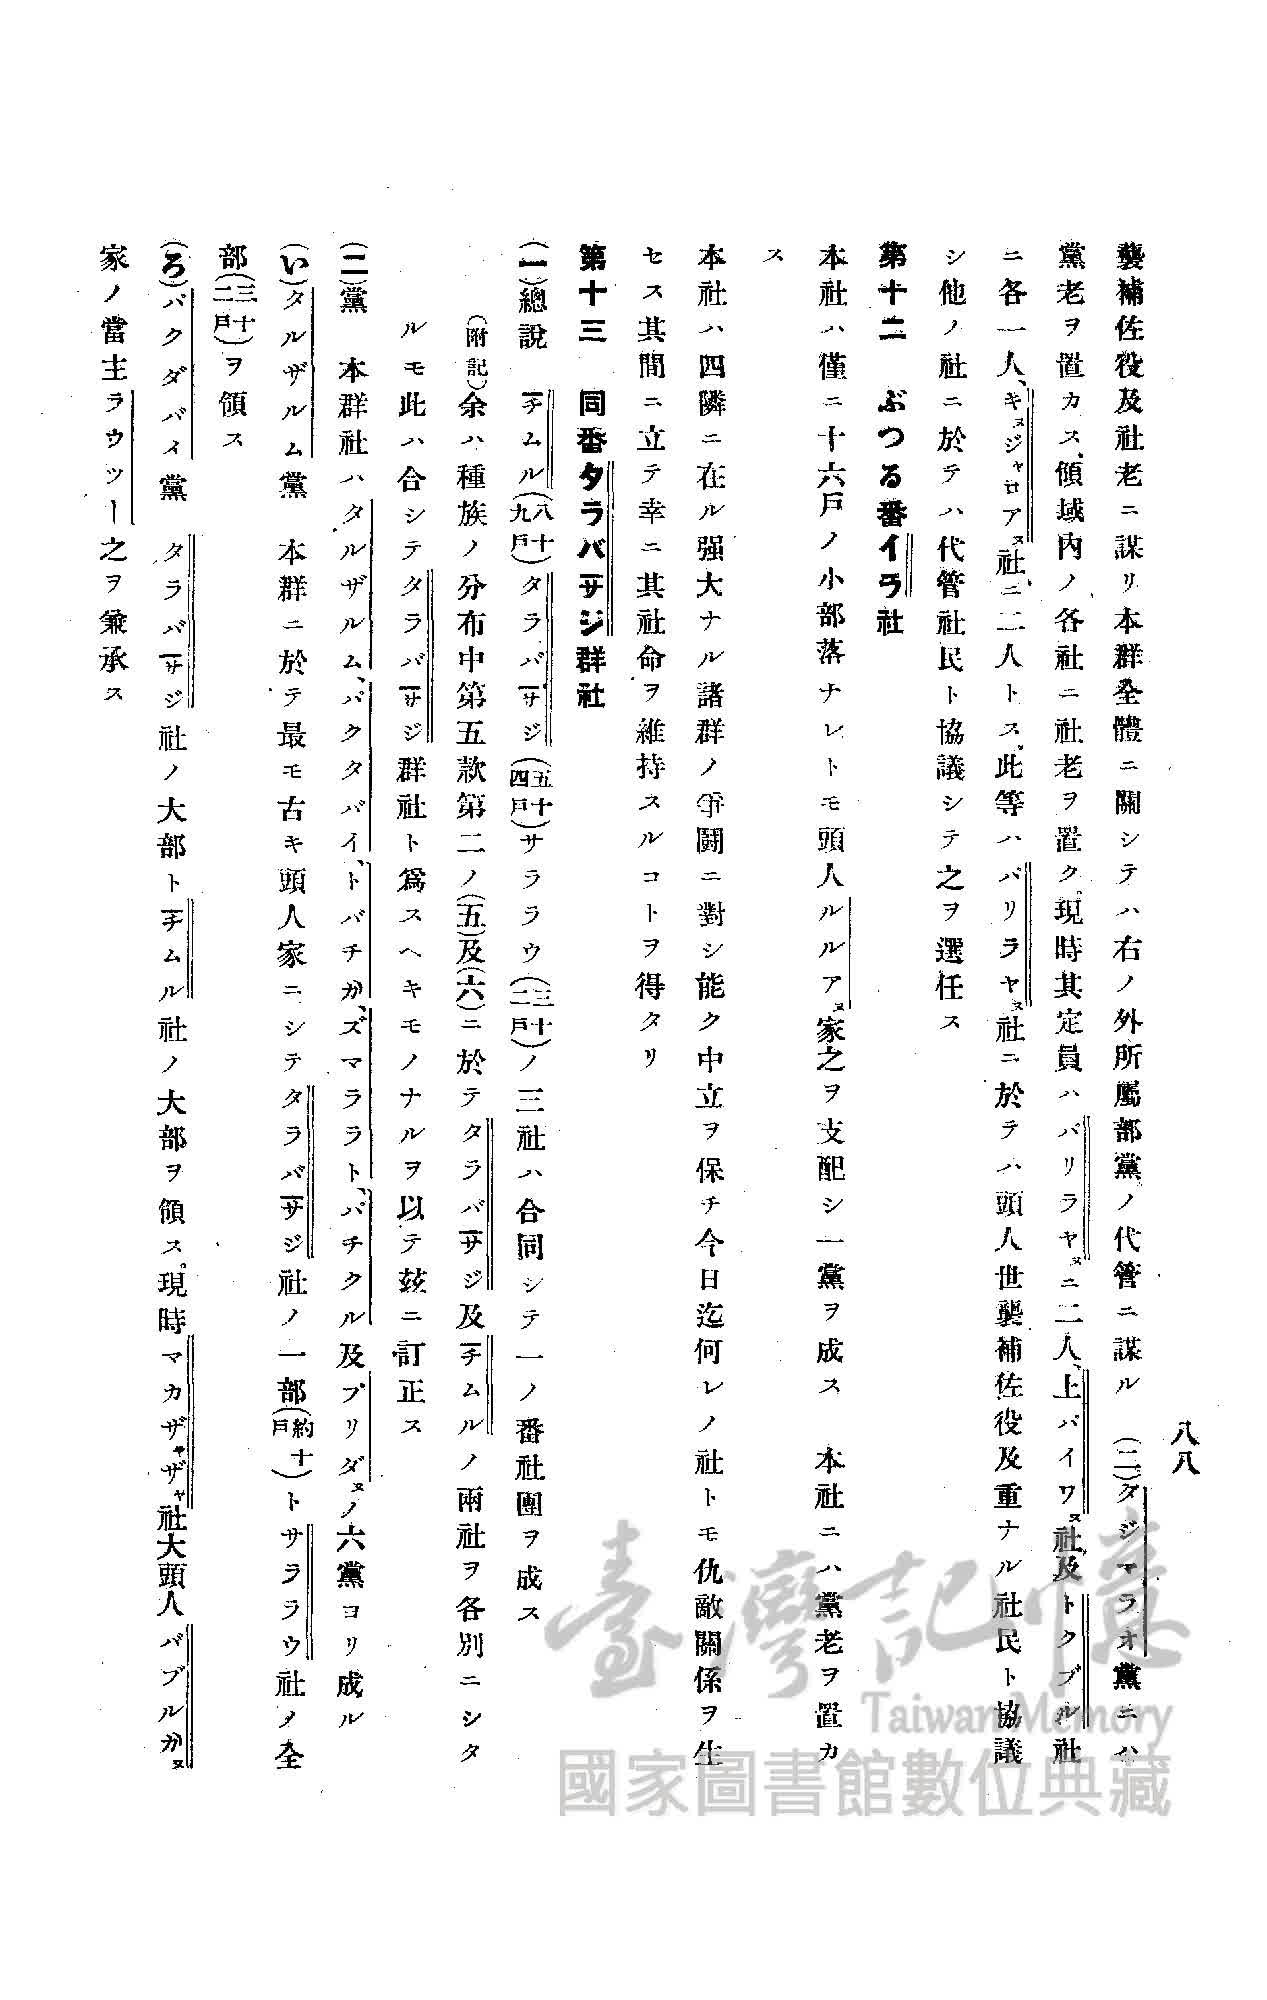 八八
襲補佐役及社老ニ謀リ本群全體ニ關シテハ右ノ外所屬部黨ノ代管ニ謀ル　(二)タジマラオ黨ニハ
黨老ヲ置カス、領域內ノ各社ニ社老ヲ置ク。現時其定員ハバリラヤㇴニ二人、上バイワㇴ社及トクブル社
ニ各一人、キㇴジャロアㇴ社ニ二人トス。此等ハバリラヤㇴ社ニ於テハ頭人世襲補佐役及重ナル社民ト協議
シ他ノ社ニ於テハ代管社民ト協議シテ之ヲ選任ス
第十二　ぶつる番イラ社
本社ハ僅ニ十六戶ノ小部落ナレトモ頭人ルルアㇴ家之ヲ支配シ一黨ヲ成ス　本社ニハ黨老ヲ置カ
ス
本社ハ四隣ニ在ル强大ナル諸群ノ爭鬪ニ對シ能ク中立ヲ保チ今日迄何レノ社トモ仇敵關係ヲ生
セス其間ニ立テ幸ニ其社命ヲ維持スルコトヲ得タリ
第十三　同番タラバサジ群社
(一)總說　チムル(八十九戶)タラバサジ(五十四戶)サララウ(三十二戶)ノ三社ハ合同シテ一ノ番社團ヲ成ス
(附記)余ハ種族ノ分布中第五款第二ノ(五)及(六)ニ於テタラバサジ及チムルノ兩社ヲ各別ニシタ
ルモ此ハ合シテタラバサジ群社ト爲スヘキモノナルヲ以テ玆ニ訂正ス
(二)黨　本群社ハタルザルム、バクタバイ、トバチガ、ズマララト、バチクル及プリダㇴノ六黨ヨリ成ル
(い)タルザルム黨　本群ニ於テ最モ古キ頭人家ニシテタラバサジ社ノ一部(約十戶)トサララウ社ノ全
部(三十二戶)ヲ領ス
(ろ)バクダバイ黨　タラバサジ社ノ大部トチムル社ノ大部ヲ領ス。現時マカザャザャ社大頭人バブルガㇴ
家ノ當主ラウツー之ヲ兼承ス
臺灣記憶
Taiwan Memory
國家圖書館數位典藏